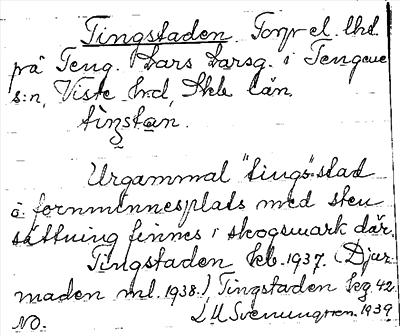 Tingstaden. Torp el. lhd.
på Teng. Lars Larsg. i Tengene
s:n, Viste hd, Skb län.
tiŋstan.
Urgammal "tings"stad
o. fornminnesplats med sten
sättning finnes i skogsmark där.
Tingstaden kb. 1937. (Djur
maden ml. 1938.) Tingstaden hg. 42
NO. L.M. Svenungsson. 1939